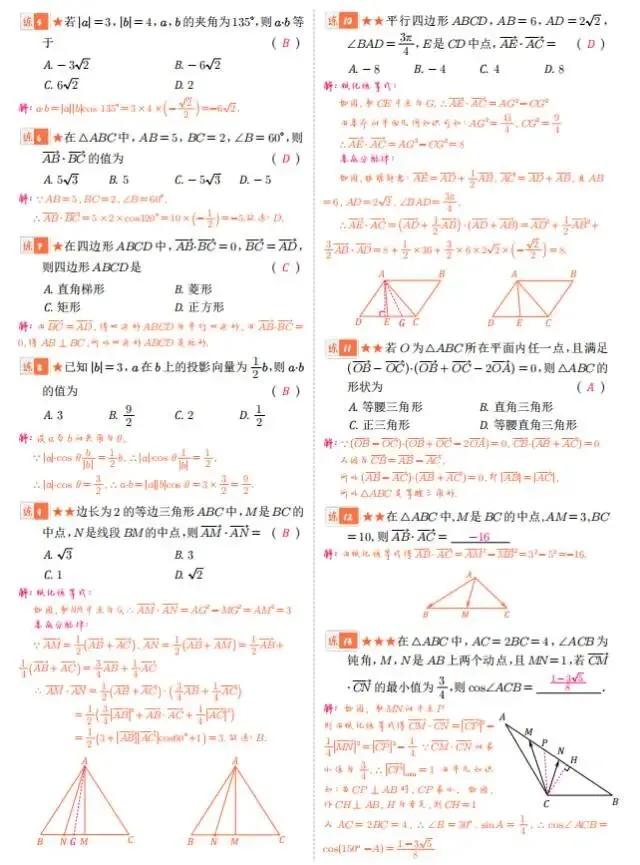 练 5 ★若|a|=3,|b|=4,a,b的夹角为135°,则a·b等
于 ( B )
A. −3√2 B. −6√2
C. 6√2 D. 2
解: a·b=|a||b|cos 135°=3×4×(−√2/2)=−6√2.
练 6 ★在△ABC中,AB=5,BC=2,∠B=60°,则
AB·BC的值为 ( D )
A. 5√3 B. 5 C. −5√3 D. −5
解: ∵AB=5,BC=2,∠B=60°,
∴AB·BC=5×2×cos120°=10×(−1/2)=−5.故选: D.
练 7 ★在四边形ABCD中,AB·BC=0,BC=AD,
则四边形ABCD是 ( C )
A. 直角梯形 B. 菱形
C. 矩形 D. 正方形
解: 由BC=AD,得四边形ABCD为平行四边形,由AB·BC=
0,得AB⊥BC,所以四边形ABCD是矩形.
练 8 ★已知|b|=3,a在b上的投影向量为1/2b,则a·b
的值为 ( B )
A. 3 B. 9/2 C. 2 D. 1/2
解: 设a与b的夹角为θ,
∵|a|·cos θ b/|b|=1/2b,∴|a|cos θ 1/|b|=1/2,
∴|a|·cos θ=3/2,∴a·b=|a||b|cos θ=3×3/2=9/2.
练 9 ★★边长为2的等边三角形ABC中,M是BC的
中点,N是线段BM的中点,则AM·AN= ( B )
A. √3 B. 3
C. 1 D. √2
解: 极化恒等式:
如图,取NM中点为G,∴AM·AN=AG²−MG²=AM²=3
基底分解律:
∵AM=1/2(AB+AC),AN=1/2(AB+AM)=1/2AB+
1/4(AB+AC)=3/4AB+1/4AC
∴AM·AN=1/2(AB+AC)·(3/4AB+1/4AC)
=1/2(3/4|AB|²+AB·AC+1/4|AC|²)
=1/2(3+|AB||AC|cos60°+1)=3.故选: B.
A A
B N G M C B N M C
练 10 ★★平行四边形ABCD,AB=6,AD=2√2,
∠BAD=3π/4,E是CD中点,AE·AC= ( D )
A. −8 B. −4 C. 4 D. 8
解: 极化恒等式:
如图,取CE中点为G,∴AE·AC=AG²−CG²
由基介山平面几何知识可知:AG²=41/4,CG²=9/4
∴AE·AC=AG²−CG²=8
基底分解律:
如图,AE=AD+1/2AB,AC=AD+AB,且AB
=6,AD=2√2,∠BAD=3π/4,
∴AE·AC=(AD+1/2AB)·(AD+AB)=AD²+1/2AB²+
3/2AB·AD=8+1/2×36+3/2×6×2√2×(−√2/2)=8.
A B A B
D E G C D E C
练 11 ★★若O为△ABC所在平面内任一点,且满足
(OB−OC)·(OB+OC−2OA)=0,则△ABC的
形状为 ( A )
A. 等腰三角形 B. 直角三角形
C. 正三角形 D. 等腰直角三角形
解: ∵(OB−OC)·(OB+OC−2OA)=0,CB·(AB+AC)=0
又因为CB=AB−AC,
所以(AB−AC)·(AB+AC)=0,即|AB|=|AC|,
所以△ABC是等腰三角形.
练 12 ★★在△ABC中,M是BC的中点,AM=3,BC
=10,则AB·AC= −16
解: 由极化恒等式得AB·AC=AM²−MB²=3²−5²=−16.
A
B M C
练 13 ★★★在△ABC中,AC=2BC=4,∠ACB为
钝角,M,N是AB上两个动点,且MN=1,若CM
·CN的最小值为3/4,则cos∠ACB= 1−3√5/8 .
解: 如图,取MN的中点P
则由极化恒等式得CM·CN=|CP|²−
1/4|MN|²=|CP|²−1/4 ∵CM·CN的最
小值为3/4,∴|CP|min=1 由平几知识
知:当CP⊥AB时,CP最小,如图,
作CH⊥AB,H为垂足,则CH=1
又AC=2BC=4,∴∠B=30°,sinA=1/4,∴cos∠ACB=
cos(150°−A)=1−3√5/8
A M P N H C B